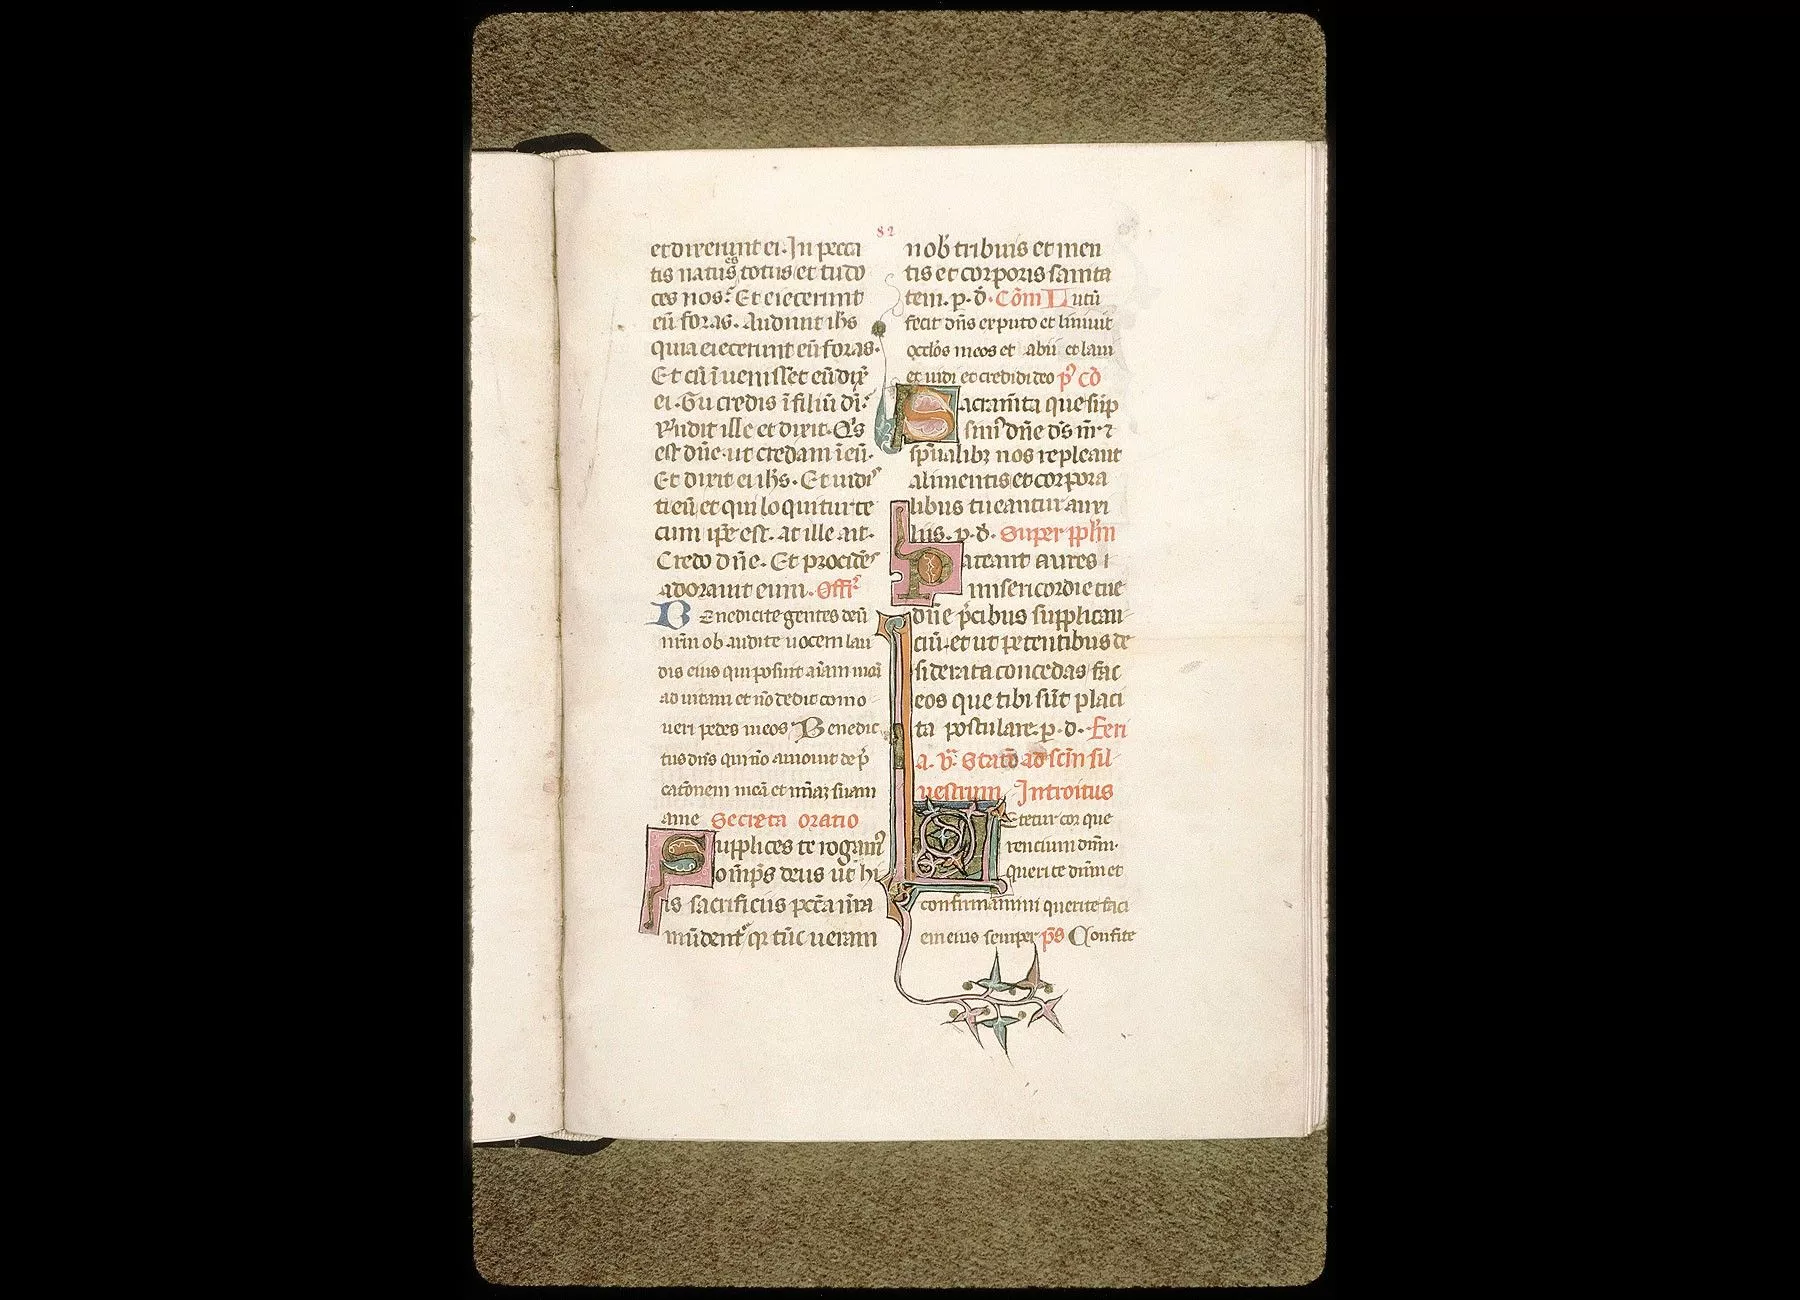 82
et dixerunt ei. In pecca
tis natus es totus et tu do
ces nos. Et eiecerunt
eū foras. Audiuit ihs
quia eiecerunt eū foras.
Et cū īuenisset eū dix̄
ei. Tu credis ī filiū dī.
Rn̄dit ille et dixit. Qs̄
est dn̄e. ut credam ī eū.
Et dixit ei ihs. Et uidis
ti eū et qui loquitur te
cum ip̄e est. at ille ait.
Credo dn̄e. Et procidēs
adorauit eum. Offr̄
Benedicite gentes deū
nr̄m ob audite uocem lau
dis eius qui posuit aīam meā
ad uitam et nō dedit como
ueri pedes meos Benedic
tus dn̄s qui nō amouit dep̄
catōnem meā et mīaz suam
ame Secreta oratio
Supplices te rogamꝰ
omīps deus ut hi
is sacrificiis pcc̄a nr̄a
mūdentr̄ qr tūc ueram
nob̄ tribuis et men
tis et corporis sanita
tem. p. d̄. Cōm Lutū
fecit dn̄s ex puto et liniuit
oc̄clōs meos et abii et laui
et uidi et credidi deo p̄ cō
Sacramīta que sūp
simꝰ dn̄e ds̄ nr̄ ⁊
sp̄ualibꝫ nos repleant
alimentis et corpora
libus tueantur auxi
liis. p. d̄. Super pp̄lm̄
Pateant aures
misericordie tue
dn̄e p̄cibus supplican
ciū. et ut petentibus de
siderata concedas fac
eos que tibi sūt placi
ta postulare. p. d. Feri
a. v. Statō ad scm̄ sil
uestrum Introitus
Letetur cor que
rencium dnm̄.
querite dnm̄ et
confirmamini querite faci
em eius semper ps̄ Confite